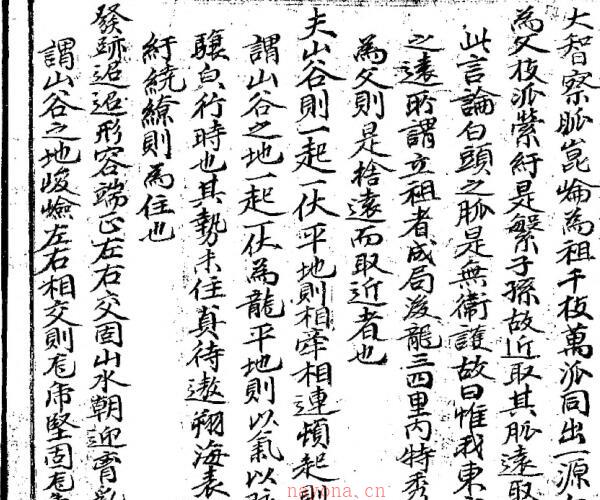 大智察脈崑崙為祖千枝萬派同出一源
為父枝派縈紆是繫子孫故近取其脈遠取
此言論白頭之脈是無衛護故曰惟我東
之遠所謂立祖者成局後龍三四里內特秀
為父則是捨遠而取近者也
夫山谷則一起一伏平地則相牽相連頓起則
謂山谷之地一起一伏為龍平地則以氣以脉
驤白行時也其勢未住真待遨翔海表
紆繞繚則為住也
發跡迢迢形容端正左右交固山水朝迎
謂山谷之地峻嶮左右相交則龙席堅固龙
nayona.cn